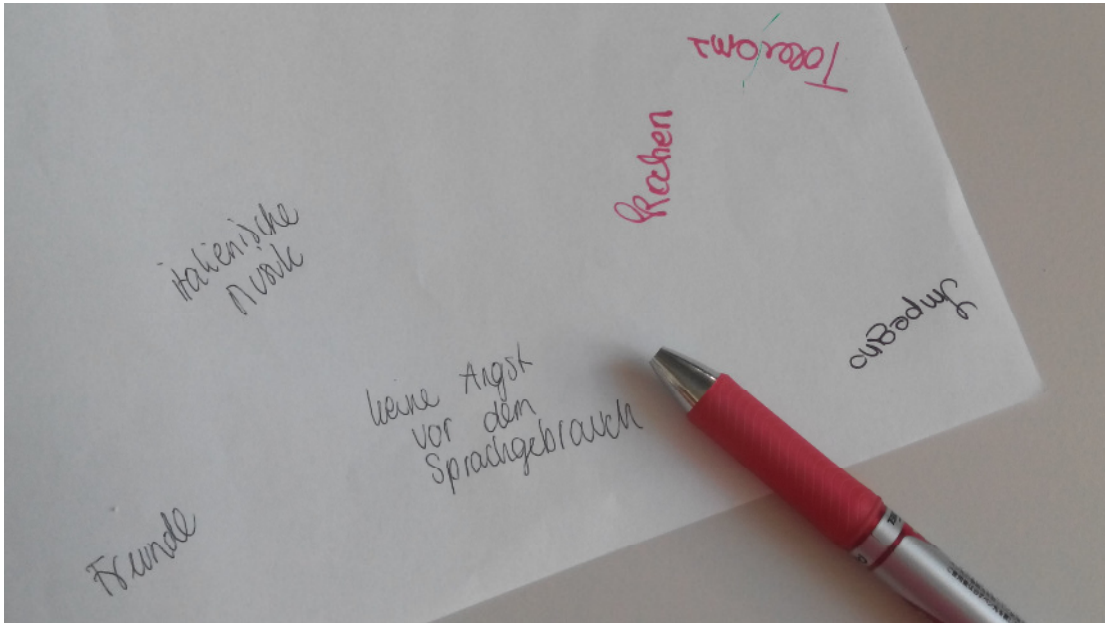 Toleranz
Kochen
italienische
Musik
Impegno
keine Angst
vor dem
Sprachgebrauch
Freunde